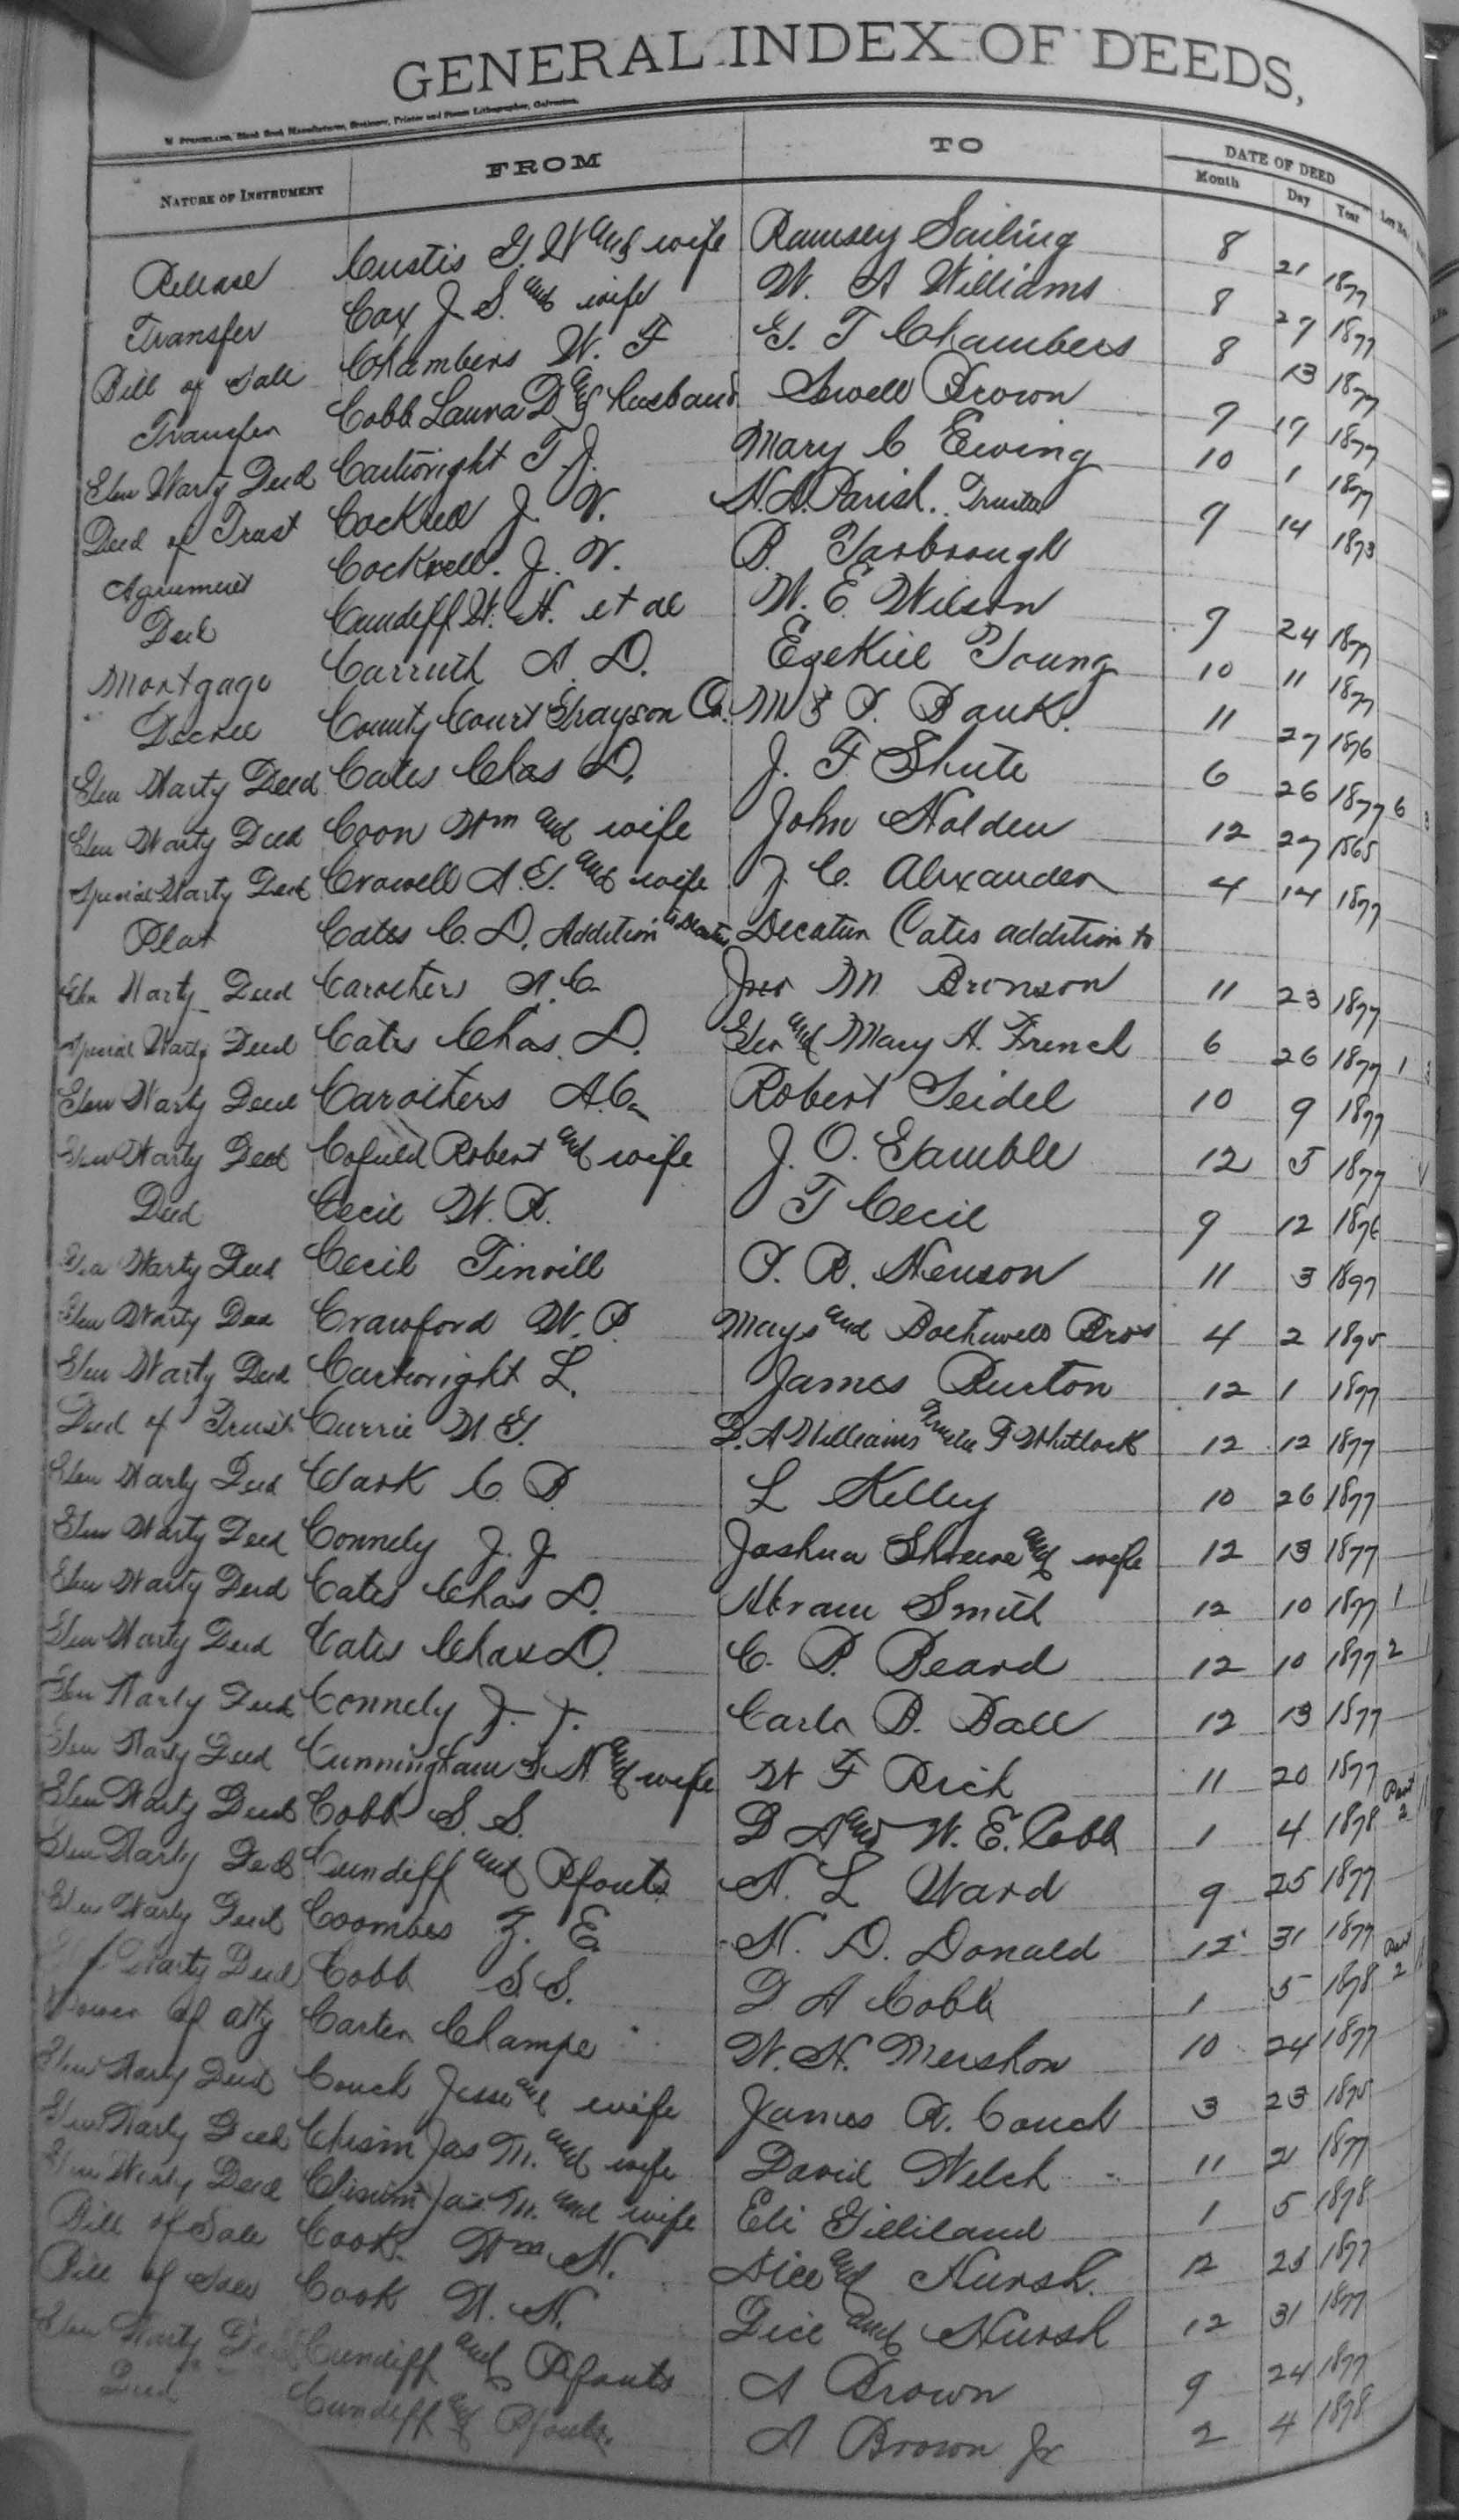 GENERAL INDEX OF DEEDS,
Blank Book Manufacturer, Stationer, Printer and Steam Lithographer, Galveston.
NATURE OF INSTRUMENT FROM TO DATE OF DEED
Month Day Year Lot No.
Release Custis G. W and wife Ramsey Sailing 8 21 1877
Transfer Cox J. S. and wife W. A Williams 8 27 1877
Bill of Sale Chambers W. F G. T Chambers 8 13 1877
Transfer Cobb Laura D and husband Sewell Brown 9 19 1877
Gen Warty Deed Cartwright T. J. Mary C Ewing 10 1 1877
Deed of Trust Cockrell J. V. Parish. Trustee 9 14 1873
Agreement Cockrell. J. V. B. Yarbrough
Deed Cundiff W. H. et al W. E. Wilson 9 24 1877
Mortgage Carruth A. D. Ezekiel Young 10 11 1877
" Decree County Court Grayson Co. M & P. Bank. 11 27 1876
Gen Warty Deed Cates Chas D. J. F Shute 6 26 1877 6
Gen Warty Deed Coon Wm and wife John Holden 12 27 1865
Special Warty Deed Crowell A. G. and wife J. C. Alexander 4 14 1877
Plat Cates C. D. Addition to Decatur Decatur Cates addition to
Gen Warty Deed Carothers A. C. Jno M Bronson 11 23 1877
Special Warty Deed Cates Chas. D. Geo and Mary H. French 6 26 1877 1
Gen Warty Deed Carothers A. C. Robert Seidel 10 9 1877
Gen Warty Deed Cofield Robert and wife J. O. Gamble 12 5 1877
Deed Cecil W. R. T Cecil 9 12 1876
Gen Warty Deed Cecil Tinvill P. R. Henson 11 3 1877
Gen Warty Deed Crawford W. P. Mays and Bothwell Bros 4 2 1875
Gen Warty Deed Cartwright L. James Burton 12 1 1877
Deed of Trust Currie W. G. D. A Williams Trustee F Whitlock 12 12 1877
Gen Warty Deed Clark C. B. L Kelley 10 26 1877
Gen Warty Deed Connely J. J. Joshua Shreve and wife 12 13 1877
Gen Warty Deed Cates Chas D. Abram Smith 12 10 1877 1
Gen Warty Deed Cates Chas D. C. P. Beard 12 10 1877 2
Gen Warty Deed Connely J. J. Carla B. Ball 12 13 1877
Gen Warty Deed Cunningham and wife W F Rich 11 20 1877
Gen Warty Deed Cobb S. S. D A and W. E. Cobb 1 4 1878 Part 2
Gen Warty Deed Cundiff and Pfouts N. L Ward 9 25 1877
Gen Warty Deed Coombes Z. E. N. D. Donald 12 31 1877
Warty Deed Cobb S. S. D A Cobb 1 5 1878 Part 2
Power of atty Carter Champe W. H. Mershon 10 24 1877
Gen Warty Deed Couch Jesse and wife James R. Couch 3 23 1875
Gen Warty Deed Chism Jas M. and wife David Welch 11 21 1877
Gen Warty Deed Chism Jas M. and wife Eli Gilliland 1 5 1878
Bill of Sale Cook Wm H. Dice and Hursh. 12 25 1877
Bill of Sale Cook W. H. Dice and Hursh 12 31 1877
Gen Warty Deed Cundiff and Pfouts A Brown 9 24 1877
Deed Cundiff and Pfouts A Brown Jr 2 4 1878